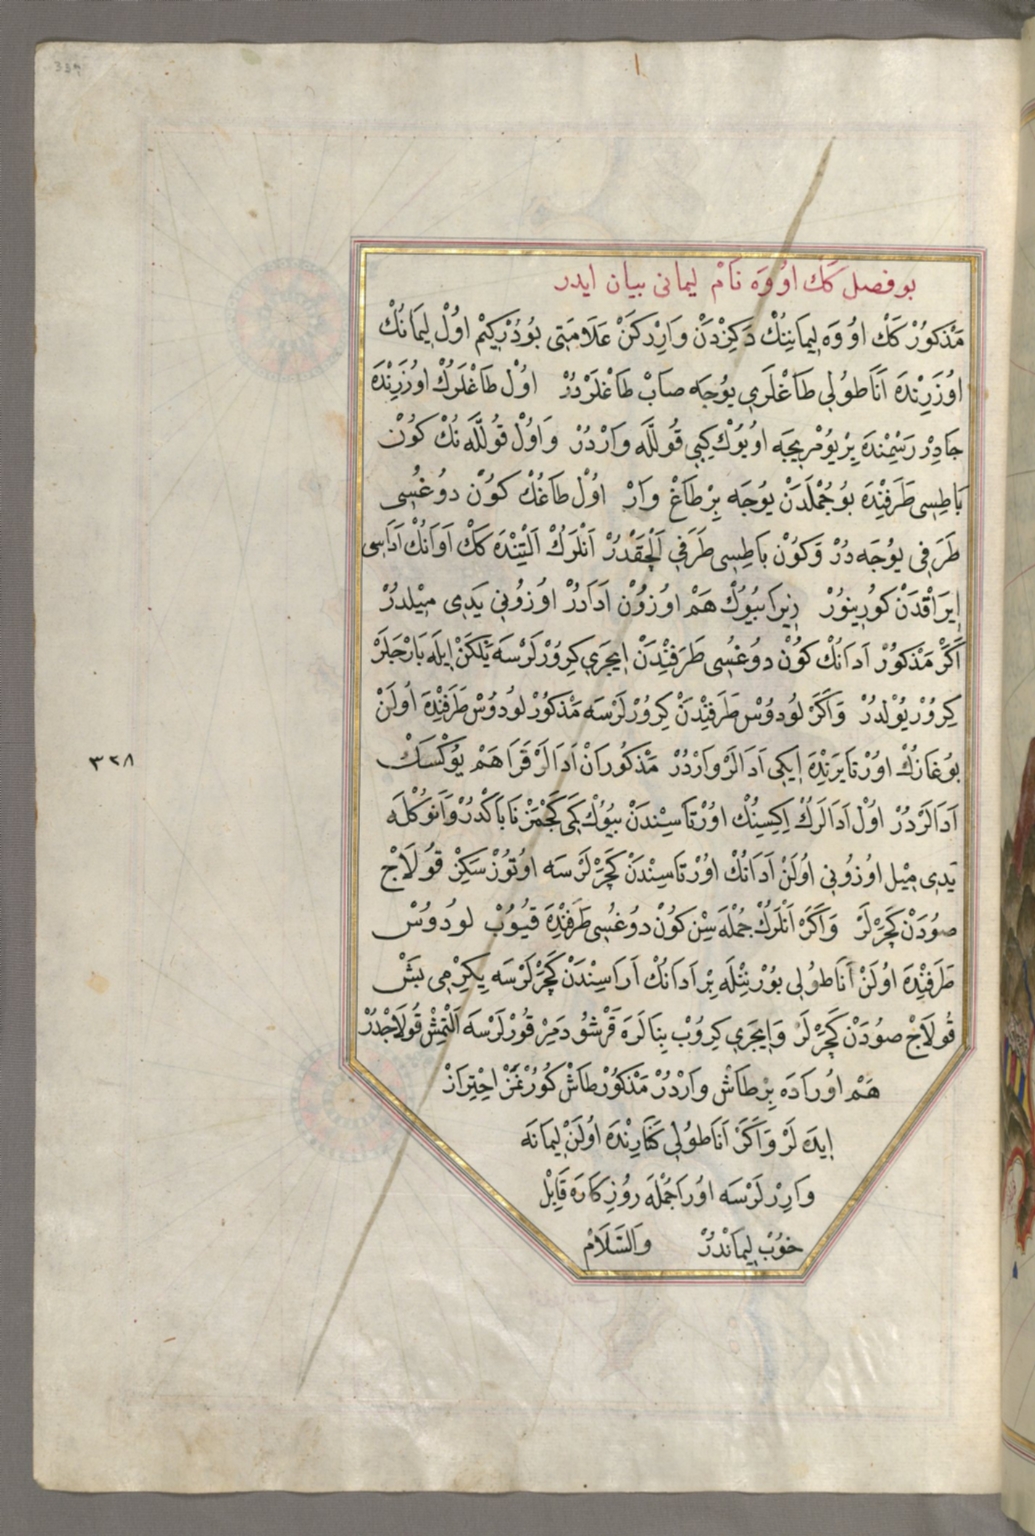 بو فصل كك اووه نام ليمانى بيان ايدر
مذكور كك اووه ليمانينك دكزدن وارركن علامتى بودركيم اول ليمانك
اوزرنده اناطولى طاغلرى يوجه صاب طاغلردر اول طاغلرك اوزرنده
جادر رسمنده بر يومريجه اويوك كبى قوللـه واردر و اول قوللـه نك كون
باطيسى طرفنده بوجملدن يوجه بر طاغ وار اول طاغك كون دوغسى
طرفى يوجه در و كون باطيسى طرفى الچقدر انلرك التنده كك اوانك اداسى
ايراقدن كورينور زيرا بيوك هم اوزون ادادر اوزونى يدى ميلدر
اكر مذكور ادانك كون دوغسى طرفندن ايجرى كرورلرسه يلكن ايله بارجلر
كرور يولدر و اكر لودوس طرفندن كرورلرسه مذكور لودوس طرفنده اولن
بوغازك اورتا يرنده ايكى ادالر واردر مذكوران ادالر قرا هم يوكسك
ادالردر اول ادالرك اكيسنك اورتاسندن بيوك كمى كچمز نا باكدر و انوكله
يدى ميل اوزونى اولن ادانك اورتاسندن كچرلرسه اوتوز سكز قولاج
صودن كچرلر و اكر انلرك جمله سن كون دوغسى طرفنده قيوب لودوس
طرفنده اولن اناطولى بورنيله بر ادانك اراسندن كچرلرسه يكرمى بش
قولاج صودن كچرلر و ايجرى كروب بنالره قرشو دمر قورلرسه التمش قولاجدر
هم اوراده بر طاش واردر مذكور طاش كورنمز احتراز
ايده لر و اكر اناطولى كنارنده اولن ليمانه
واررلرسه اوراجمله روزكاره قابل
خوب ليماندر والسلام
٣٢٨